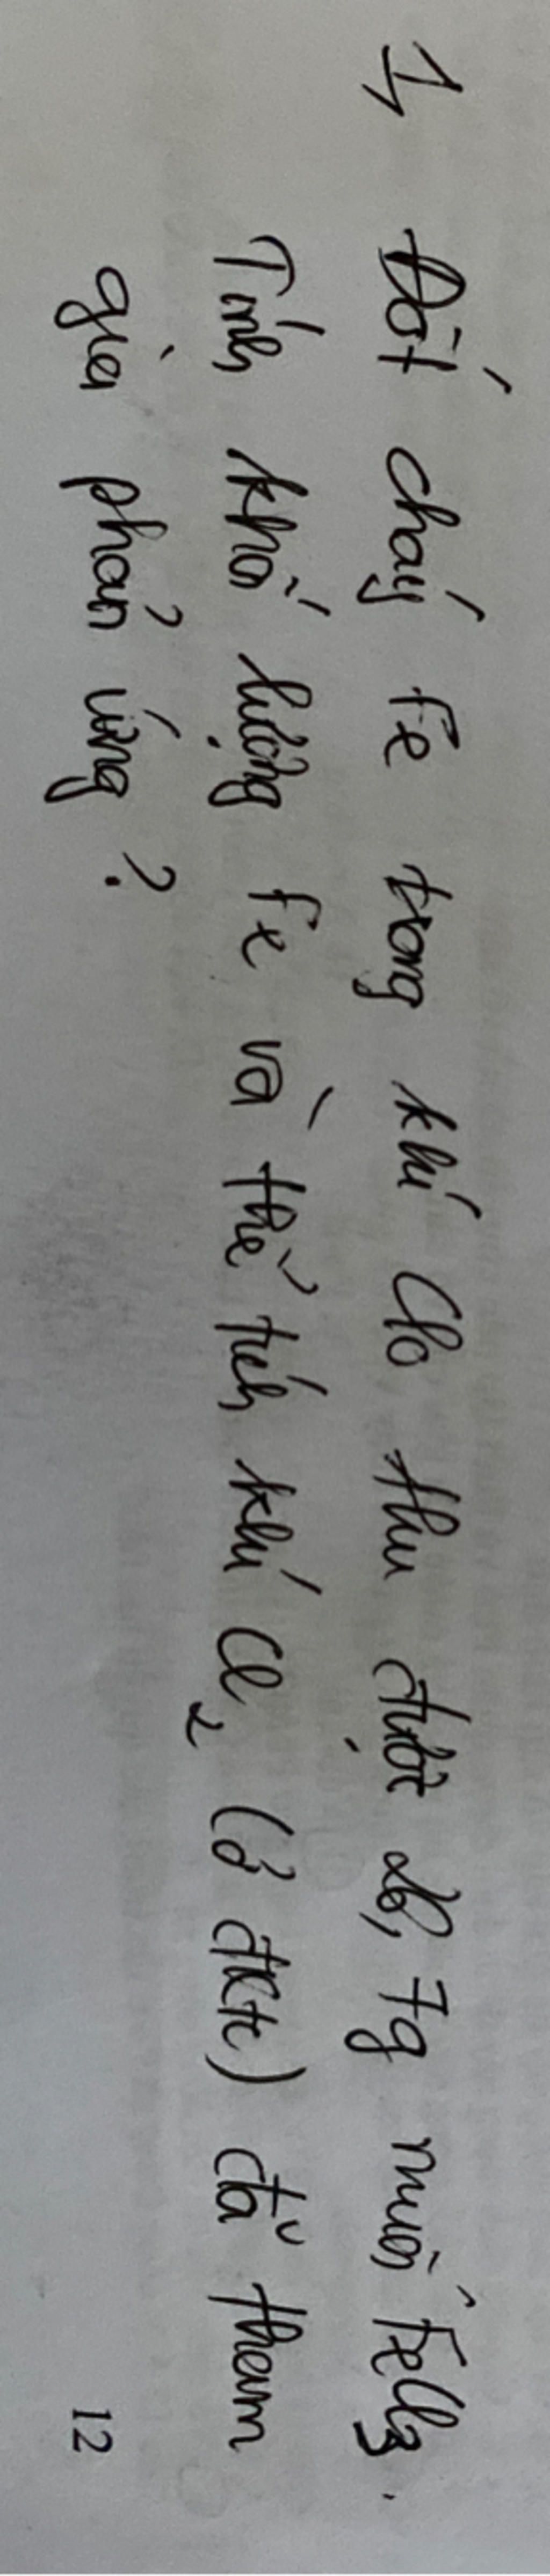 1, Đốt cháy Fe trong khí Clo thu được 26,7g muối FeCl3.
Tính khối lượng Fe và thể tích khí Cl2 (ở đktc) đã tham
gia phản ứng?
12